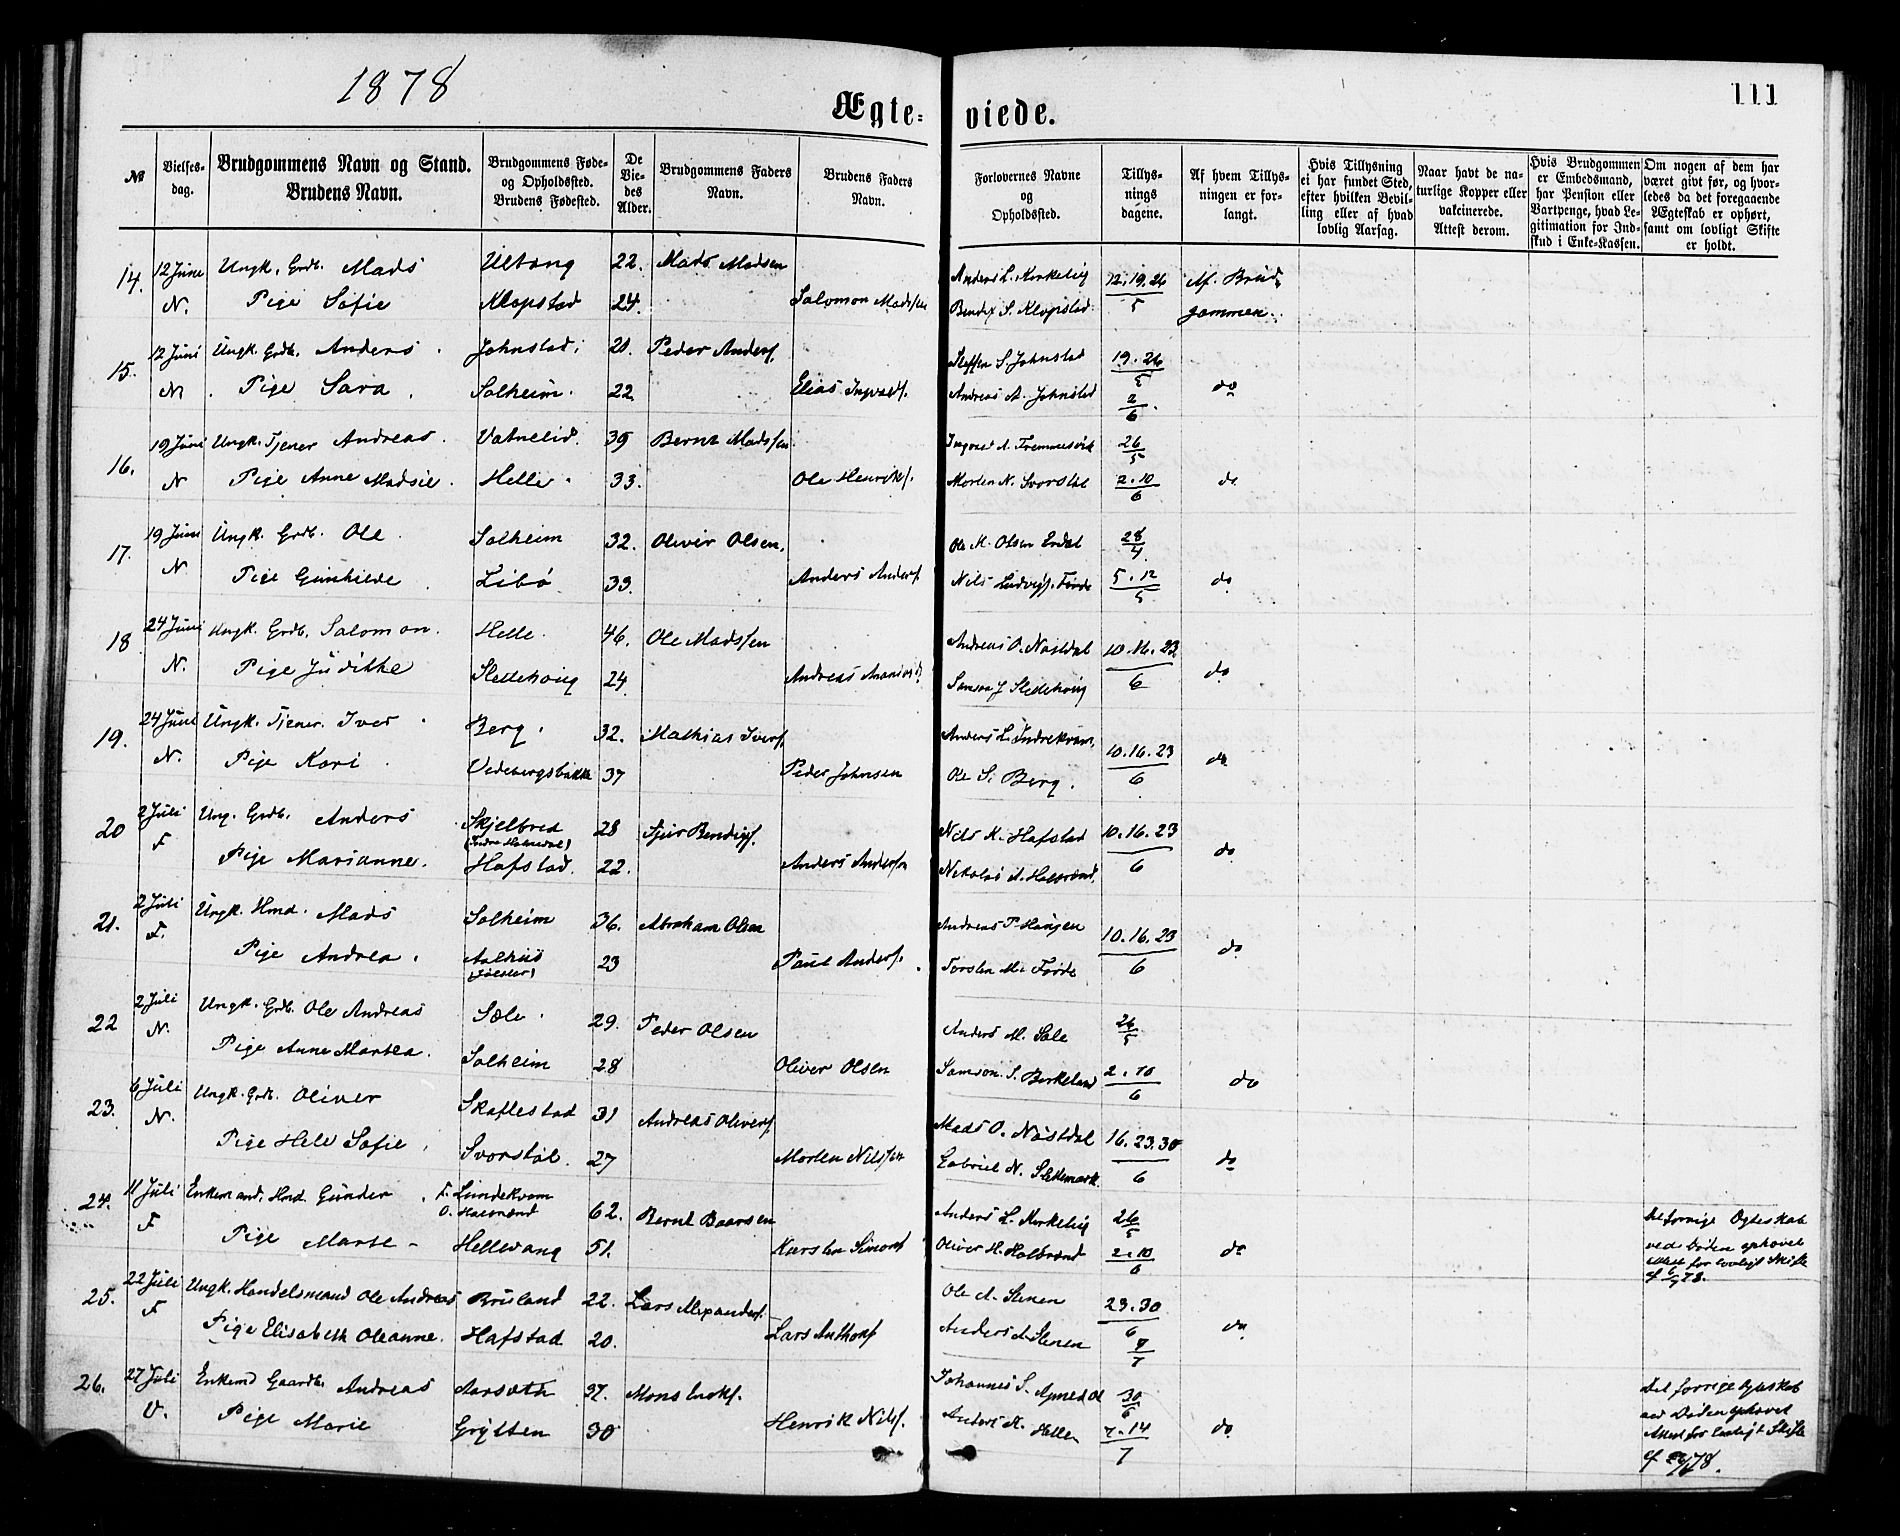 1878
111
Ægte- viede.
№
Vielses-
dag.
Brudgommens Navn og Stand.
Brudens Navn.
Brudgommens Føde-
og Opholdssted.
Brudens Fødested.
De
Vie-
des
Alder.
Brudgommens Faders
Navn.
Brudens Faders
Navn.
Forlovernes Navne
og
Opholdssted.
Tillys-
nings
dagene.
Af hvem Tillys-
ningen er for-
langt.
Hvis Tillysning
ei har fundet Sted,
efter hvilken Bevil-
ling eller af hvad
lovlig Aarsag.
Naar havt de na-
turlige Kopper eller
vakcinerede.
Attest derom.
Hvis Brudgommen
er Embedsmand,
har Pension eller
Vartpenge, hvad Le-
gitimation for Ind-
skud i Enke-Kassen.
Om nogen af dem har
været givt før, og hvor-
ledes da det foregaaende
Ægteskab er ophørt,
samt om lovligt Skifte
er holdt.
14. 12 June Ungk. Grdb. Mads Ultang 22. Mads Madsen Anders L. Kirkelig 12. 19. 26 Af Brud-
N. Pige Sofie Klopstad 24. Salomon Madssen Bendix S. Klopstad 5 gommen.
15. 12 Juni Ungk. Grdb. Anders Johnstad 21. Peder Anders. Steffen S. Johnstad 19. 26
5
N Pige Sara Solheim 22 Elias Ingvalds. Andreas A. Johnstad 2 do
6
16. 19 Juni Ungk. Tjener Andreas Vatnelid 35 Bernt Madssen Ingvald A. Fremmesvik 26
5
N Pige Anne Madsie Helle 33. Ole Henriks. Morten N. Svorstøl 2. 10 do
6
17. 19 Juni Ungk. Grdb. Ole Solheim 32. Oliver Olsen Ole M. Olsen Erdal 28
4
N Pige Gunhilde Libø 33. Anders Anders. Nils Ludvigs. Førde 5. 12 do
5
18 24 Juni Ungk. Grdb. Salomon Helle 46. Ole Madssen Andreas O. Nastdal 10. 16. 23
N. Pige Judithe 24. Andreas 6 do
19. 24 Juni Ungk. Tjener Iver Berg 32. Mathias Ivers. Anders L. Indrekvam 10. 16. 23
N. Pige Kari Vedebergsbakke 37 Peder Johnsen Ole S. Berg 6 do
20 2 Juli Ung. Grdb. Anders Skjelbred 28 Sjur Bendixs. Nils K. Hafstad 10. 16. 23
(Indre Holmedal)
F Pige Marianne Hafstad 22. Anders Anderssen Nikolai A. Halbrænd 6 do
21. 2 Juli Ungk. Hmd. Mads Solheim 36. Abraham Olsen Andreas P. Haugen 10. 16. 23
F. Pige Andrea Aalhus 23 Paul Anders. Torsten M. Førde 6 do
(Jølster)
22 2 Juli Ungk. Grdb. Ole Andreas Sæle 29. Peder Olsen Anders M. Sæle 26
5
N. Pige Anne Martea Solheim 28 Oliver Olsen Samson S. Birkeland 2. 10 do
6
23. 6 Juli Ungk. Grdb. Oliver Skaflestad 31 Andreas Olivers. Mads O. Nastdal 16. 23. 30
N. Pige Hele Sofie Svorstøl 27 Morten Nilssen Gabriel N. 6 do
24. 11 Juli Enkemand. Hmd. Gunder F. Lundekvam 62. Bernt Baarsen Anders L. Kirkelig 26
O. Halbrænd 5
F Pige Marte Hellevang 51. Karsten Simons. Oliver H. Halbrænd 2. 10 do
6
Det forrige Egteskab
ved Døden ophævet
Attest for lovligt Skifte
25. 22 Juli Ungk. Handelsmand Ole Andreas Bruland 22. Lars Alexanders. Ole A. Stenen 23. 30
6
F Pige Elisabeth Oleanne Hafstad 20. Lars Anthons. Anders A. Stenen 7 do
7
26. 27 Juli Enkemd Gaardb. Andreas Aarsæth 37. Mons Johannes S. 30
6
V. Pige Marie Grytten 30 Henrik Nils. Anders A. Helle 7. 14 do
7
Det forrige Egteskab
ved Døden ophævet
Attest for lovligt Skifte